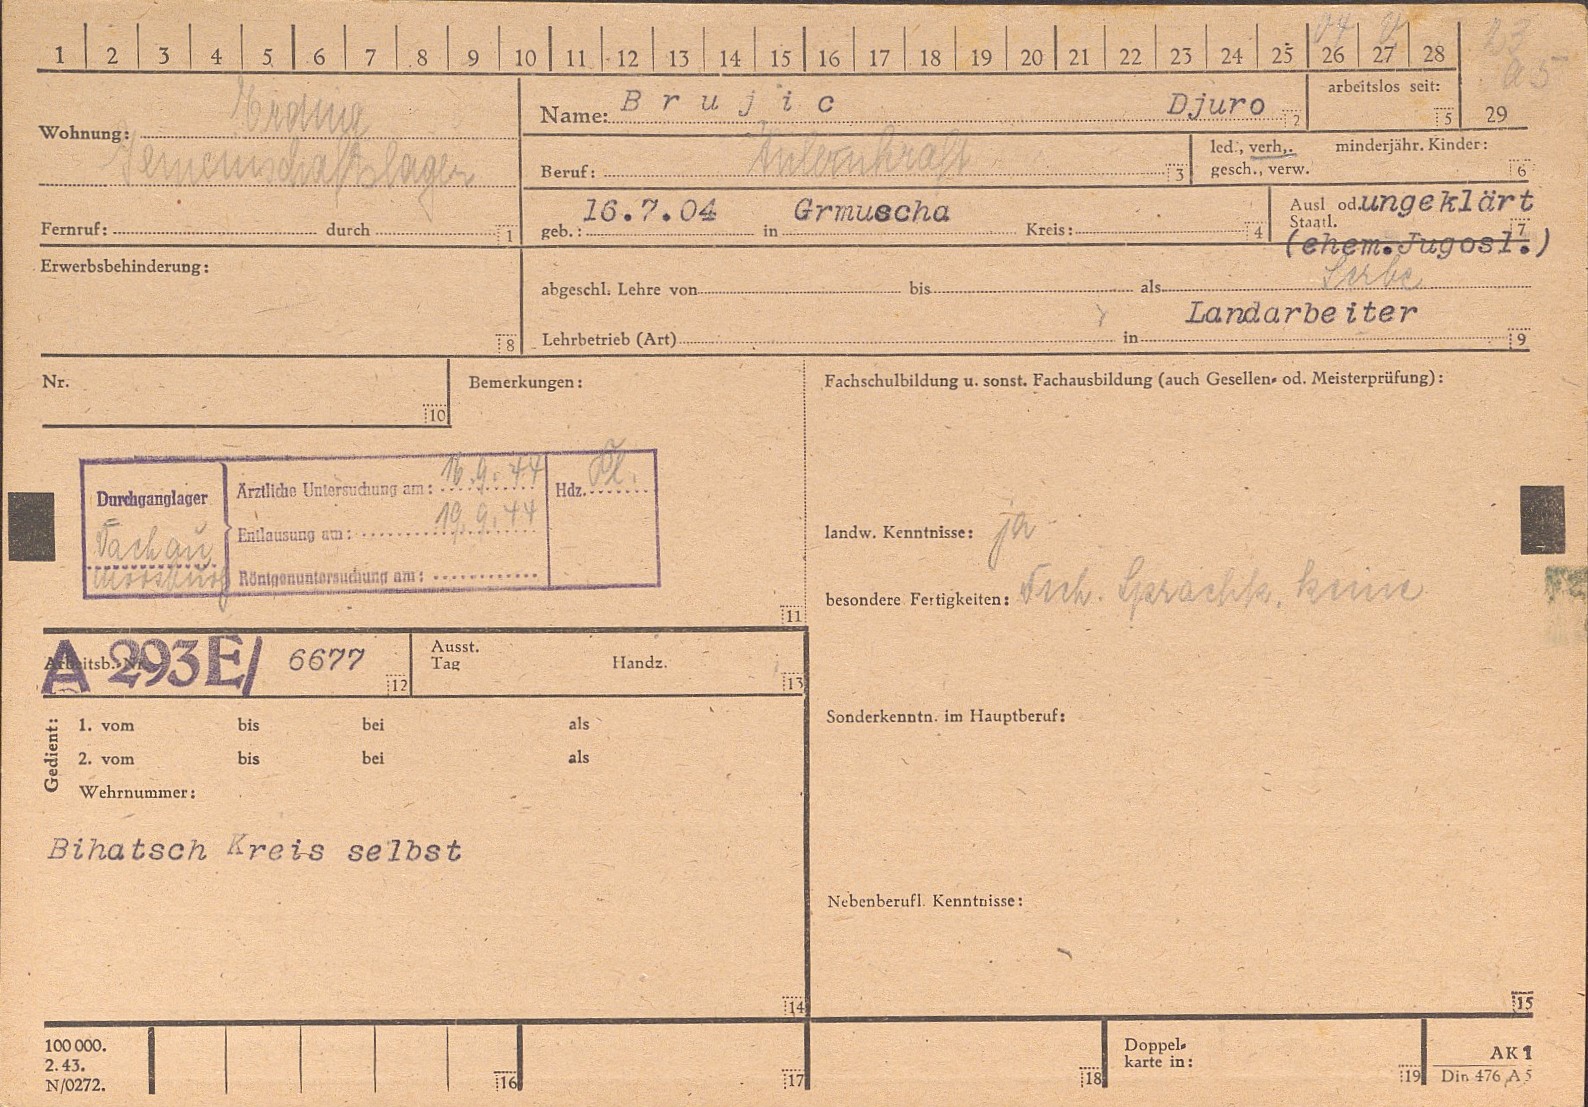 1 2 3 4 5 6 7 8 9 10 11 12 13 14 15 16 17 18 19 20 21 22 23 24 25 26 27 28
Wohnung: Erding
Gemeinschaftslager
Fernruf: durch 1
Name: Brujic Djuro 2
arbeitslos seit: 5
29
Beruf: Hilfs 3
led., verh., minderjähr. Kinder:
gesch., verw. 6
geb.: 16.7.04 in Grmuscha Kreis: 4
Ausl od. ungeklärt
Staatl. 7
(ehem.Jugosl.)
Serbe
Erwerbsbehinderung:
8
abgeschl. Lehre von bis als
Landarbeiter
Lehrbetrieb (Art) in 9
Nr.
10
Bemerkungen:
Durchganglager
Dachau
Moosburg
Ärztliche Untersuchung am: 16.9.44
Entlausung am: 19.9.44
Röntgenuntersuchung am:
Hdz.
11
Fachschulbildung u. sonst. Fachausbildung (auch Gesellen- od. Meisterprüfung):
landw. Kenntnisse: ja
besondere Fertigkeiten: Dtsch. Sprachk. keine
Sonderkenntn. im Hauptberuf:
Nebenberufl. Kenntnisse:
15
Arbeitsb.-Nr. A 293E/ 6677 12
Ausst.
Tag Handz. 13
Gedient:
1. vom bis bei als
2. vom bis bei als
Wehrnummer:
Bihatsch Kreis selbst
14
100 000.
2. 43.
N/0272.
16 17 18
Doppel-
karte in: 19
AK 1
Din 476 A 5